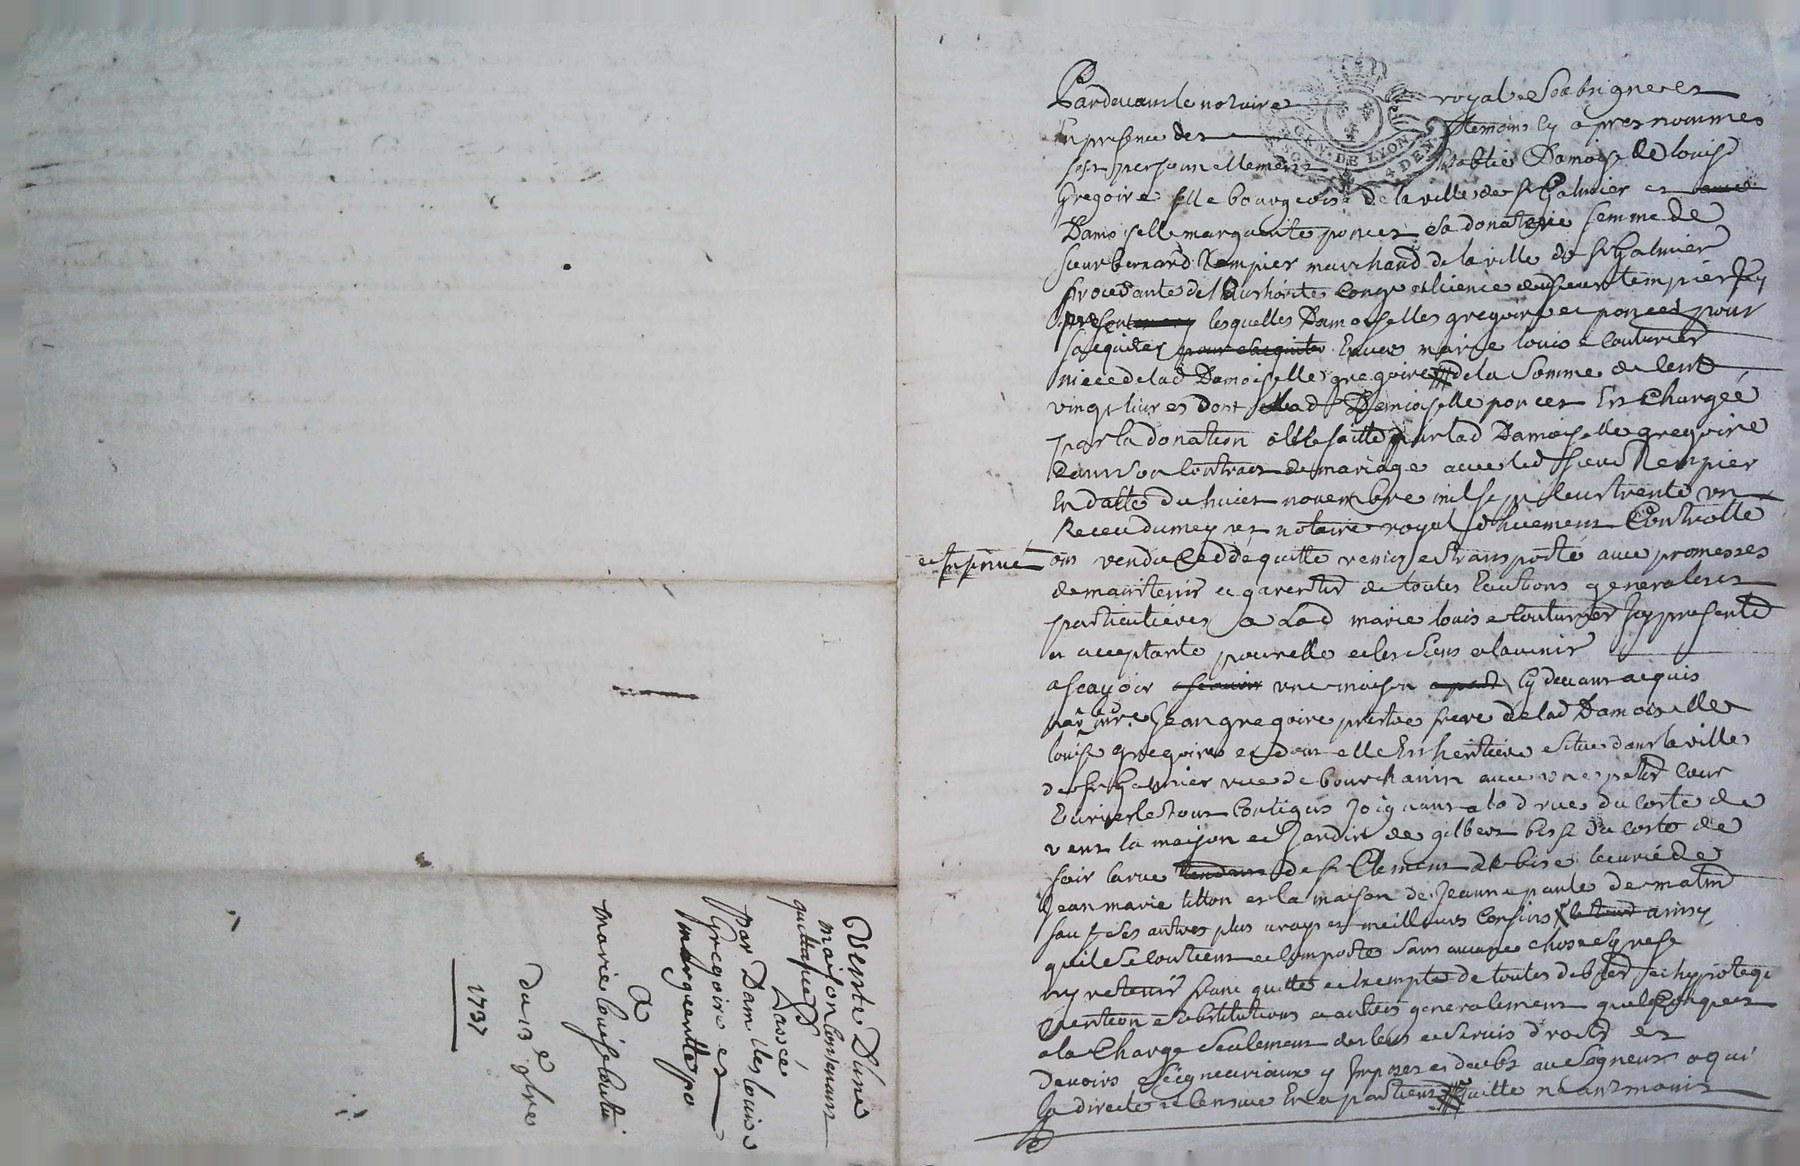 Pardevant le notaire royal Soubsigne et
En presence des temoins cy apres nommes
sest personnellement Establie Damoiselle louise
Gregoire fille bourgeoise de la ville de st Galmier et
Damoiselle marguerite poncet sa donataire femme de
sieur bernard Tempier marchand de la ville de st Galmier
procedante de l'authorité conge et licence dud sieur tempier Icy
present lesquelles Damoiselles gregoire et poncet pour
sacquiter Envers marie louise Couturier
niece de lad Damoiselle gregoire de la Somme de Cent
vingt livres dont lad Demoiselle poncet Est Chargée
par la donation a elle faitte par lad Damoiselle gregoire
dans son Contract de mariage avec led sieur Tempier
En datte du huict novembre mil sept cent trente un
Receu et notaire royal duement Controllé
et Insinué
ont vendu Cedde quitte remis et transporté avec promesses
de maintenir et garentir de toutes Evictions generales et
particulieres a Lad marie louise Couturier Icy presente
et acceptante pour elle et les Siens a lavenir
ascavoir une maison Cy devant acquis
par mre Jean gregoire prestre frere de lad Damoiselle
louise gregoire et dont elle Est heritiere située dans la ville
de st Galmier rue de bourchanin avec une petite Cour
Ecurie le tout Contigus Joignant a lad rue du costé de
vent la maison et Jardin de gilbert du costé de
soir la rue de st Clement de bise lecurie de
Jean marie et la maison de Jeanne de matin
sauf ses autres plus vrays et meilleurs Confins ainsy
quil se Contient et Comporte sans aucune chose
ny retenir franc quitte et Exempte de toutes debtes hypoteques
pention Substitutions et autres generalement quelConques
a la Charge Seulement des Cens et Servis droits et
devoirs Seigneuriaux y Imposes et deubs au Seigneur a qui
la directe et Censive En apartient quitte neantmoins
Vente D'une
maison Contenant
quittance
Passée
par Dam.lles louise
Gregoire et
margueritte po
A
marie louise Coutu
du 13e 9bre
1737